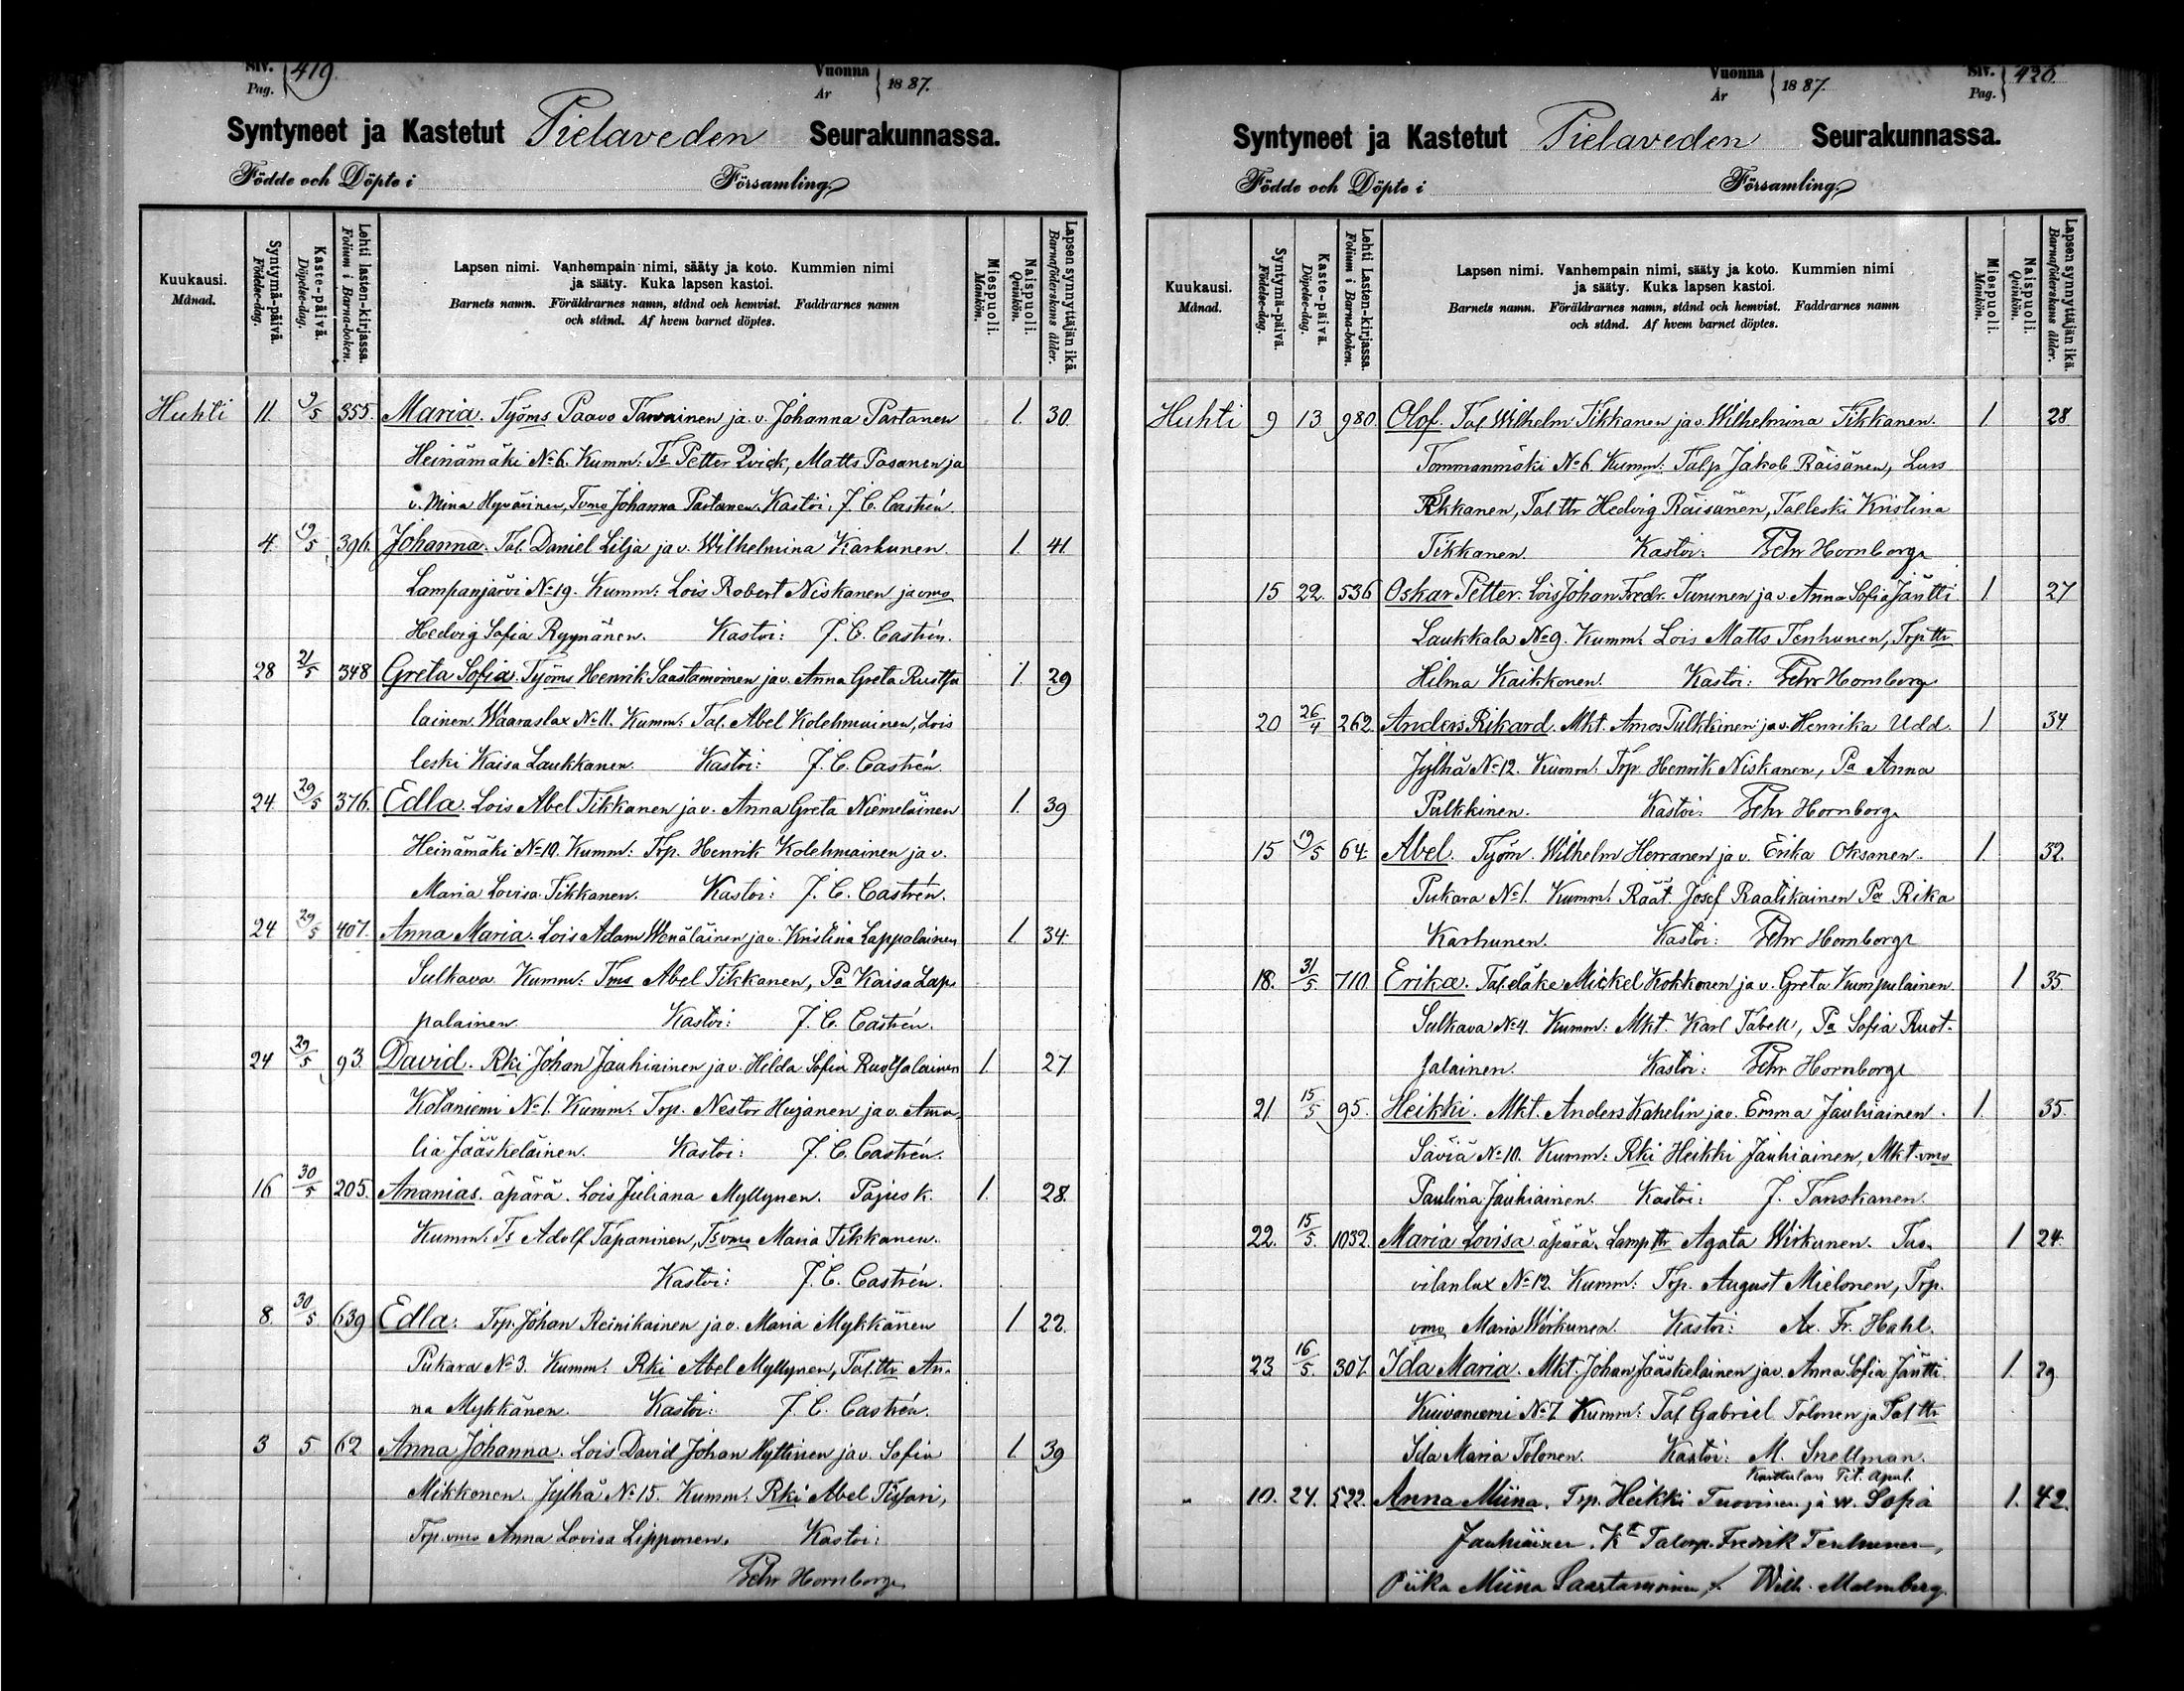 Siv. Pag. 419
Vuonna År 1887.
Syntyneet ja Kastetut Pielaveden Seurakunnassa.
Födde och Döpte i Församling.
Kuukausi. Månad.
Syntymä-päivä. Födelse-dag.
Kaste-päivä. Döpelse-dag.
Lehti lasten-kirjassa. Folium i Barna-boken.
Lapsen nimi. Vanhempain nimi, sääty ja koto. Kummien nimi
ja sääty. Kuka lapsen kastoi.
Barnets namn. Föräldrarnes namn, stånd och hemvist. Faddrarnes namn
och stånd. Af hvem barnet döptes.
Miespuoli. Mankön.
Naispuoli. Qvinkön.
Lapsen synnyttäjän ikä. Barnaföderskans ålder.
Huhti 11. 9/5 355. Maria. Työms Paavo Tarvainen ja v. Johanna Partanen 1. 30.
Heinämäki No 6. Kumm: Ts Petter Qvick, Matts Pasanen ja
v. Mina Hyvärinen, Tvmo Johanna Partanen. Kastoi: J. C. Castrén.
4. 19/5 396. Johanna. Tal. Daniel Lilja ja v. Wilhelmina Karhunen. 1. 41.
Lampanjärvi No 19. Kumm: Lois Robert Niskanen ja vmo
Hedvig Sofia Ryynänen. Kastoi: J. C. Castrén.
28 21/5 348 Greta Sofia. Työms Henrik Saastamoinen ja v. Anna Greta Ruotsa 1. 29
lainen. Waaraslax No 11. Kumm: Tal. Abel Kolehmainen, Lois
leski Kaisa Laukkanen. Kastoi: J. C. Castrén.
24. 29/5 376. Edla. Lois Abel Tikkanen ja v. Anna Greta Niemeläinen 1. 39
Heinämäki No 10. Kumm: Trp. Henrik Kolehmainen ja v.
Maria Lovisa Tikkanen. Kastoi: J. C. Castrén.
24 29/5 407. Anna Maria. Lois Adam Wenäläinen ja v. Kristina Lappalainen 1. 34.
Sulkava Kumm: Tms Abel Tikkanen, Pa Kaisa Lap-
palainen. Kastoi: J. C. Castrén.
24 29/5 93. David. Rki Johan Jauhiainen ja v. Helda Sofia Ruotsalainen 1. 27.
Kotaniemi No 1. Kumm: Trp. Nestor Hujanen ja v. Ama-
lia Jääskeläinen. Kastoi: J. C. Castrén.
16 30/5 205. Ananias. äpärä. Lois Juliana Myllynen. Pajusk. 1. 28.
Kumm: Ts Adolf Tapaninen, Ts vmo Maria Tikkanen.
Kastoi: J. C. Castrén.
8. 30/5 639 Edla. Trp. Johan Reinikainen ja v. Maria Mykkänen 1 22.
Pukara No 3. Kumm: Rki Abel Myllynen, Tal. ttr An-
na Mykkänen. Kastoi: J. C. Castrén.
3 5 62 Anna Johanna. Lois David Johan Hyttinen ja v. Sofia 1. 39
Mikkonen. Jylhä No 15. Kumm: Rki Abel
Trp. vmo Anna Lovisa Lipponen. Kastoi:
Fehr Hornborg.
Vuonna År 1887.
Siv. Pag. 420.
Syntyneet ja Kastetut Pielaveden Seurakunnassa.
Födde och Döpte i Församling.
Kuukausi. Månad.
Syntymä-päivä. Födelse-dag.
Kaste-päivä. Döpelse-dag.
Lehti Lasten-kirjassa. Folium i Barna-boken.
Lapsen nimi. Vanhempain nimi, sääty ja koto. Kummien nimi
ja sääty. Kuka lapsen kastoi.
Barnets namn. Föräldrarnes namn, stånd och hemvist. Faddrarnes namn
och stånd. Af hvem barnet döptes.
Miespuoli. Mankön.
Naispuoli. Qvinkön.
Lapsen synnyttäjän ikä. Barnaföderskans ålder.
Huhti 9 13 980. Olof. Tal Wilhelm Tikkanen ja v. Wilhelmina Tikkanen. 1. 28
Tommanmäki No 6 Kumm: Talp. Jakob Räisänen, Lars
Tikkanen, Tal. ttr Hedvig Räisänen, Tal leski Kristina
Tikkanen. Kastoi: Fehr Hornborg.
15 22. 536 Oskar Petter. Lois Johan Fredr. Turunen ja v. Anna Sofia Jäntti 1 27
Laukkala No 9. Kumm: Lois Matts Tenhunen, Trp ttr
Hilma Kaikkonen. Kastoi: Fehr Hornborg.
20 26/4 262. Anders Rikard. Mkt. Amos Pulkkinen ja v. Henrika Udd. 1 34
Jylhä No 12. Kumm: Trp. Henrik Niskanen, Pa Anna
Pulkkinen. Kastoi: Fehr Hornborg.
15 19/5 64. Abel. Työm. Wilhelm Herranen ja v. Erika Oksanen. 1. 32.
Pukara No 1. Kumm: Räät. Josef Raatikainen Pa Rika
Karhunen. Kastoi: Fehr Hornborg.
18. 31/5. 710. Erika. Tal. eläke Mickel Kokkonen ja v. Greta Kumpulainen 1 35.
Sulkava No 4. Kumm: Mkt. Karl Tabell, Pa Sofia Ruot-
salainen. Kastoi: Fehr Hornborg.
21. 15/5 95. Heikki. Mkt. Anders Kahelin ja v. Emma Jauhiainen. 1. 35.
Säviä No 10. Kumm: Rki Heikki Jauhiainen, Mkt. vmo
Paulina Jauhiainen. Kastoi: J. Tanskanen.
22. 15/5. 1032. Maria Lovisa äpärä. Lamp ttr Agata Wirkunen. Tuo- 1 24.
vilanlax No 12. Kumm: Trp. August Mielonen, Trp.
vmo Maria Wirkunen. Kastoi: Ax. Fr. Hahl.
23. 16/5. 307. Ida Maria. Mkt. Johan Jääskelainen ja v. Anna Sofia Jäntti. 1. 29.
Kiuvaniemi No 7. Kumm: Tal Gabriel Tolonen ja Tal ttr
Ida Maria Tolonen. Kastoi: M. Snellman.
Karttulan Vit. Apul.
" 10. 24. 522. Anna Miina. Trp. Heikki Tuovinen ja w. Sofia 1. 42.
Jauhiainen. Kt Talonp. Fredrik Tenhunen,
Piika Miina Saastamoinen. Wilh. Malmberg.